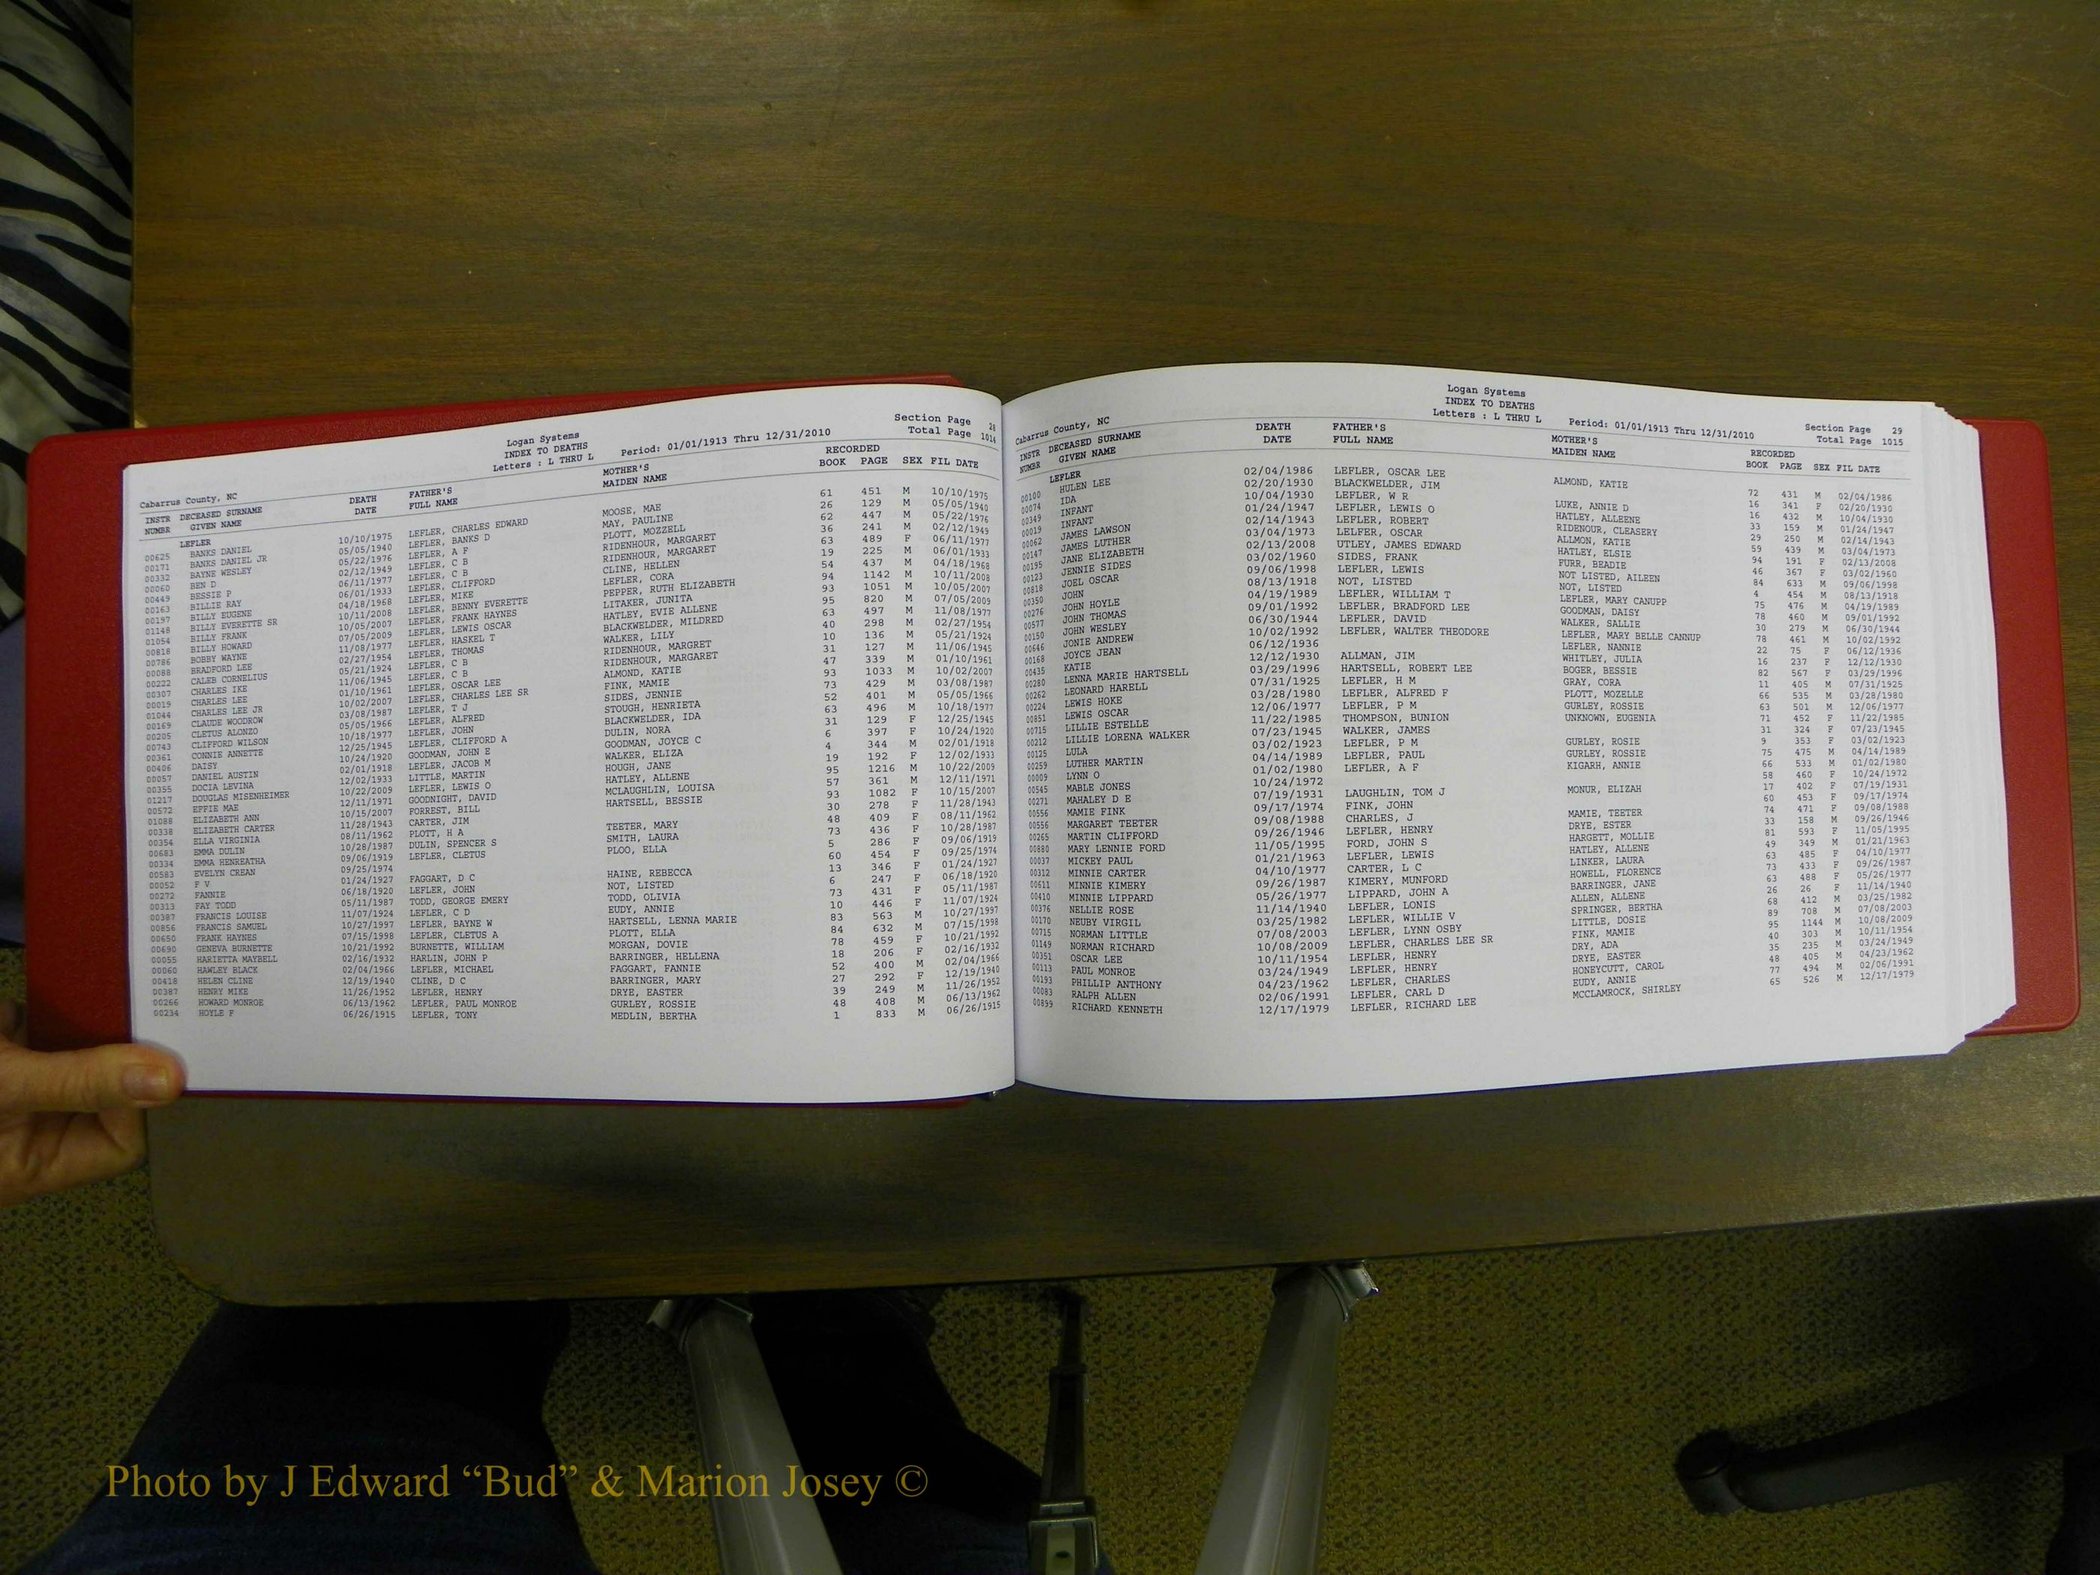 Logan Systems
INDEX TO DEATHS
Letters : L THRU L Period: 01/01/1913 Thru 12/31/2010
Section Page 28
Total Page 1014
Cabarrus County, NC
INSTR DECEASED SURNAME DEATH FATHER'S MOTHER'S RECORDED
NUMBR GIVEN NAME DATE FULL NAME MAIDEN NAME BOOK PAGE SEX FIL DATE
LEFLER
00625 BANKS DANIEL 10/10/1975 LEFLER, CHARLES EDWARD MOOSE, MAE 61 451 M 10/10/1975
00171 BANKS DANIEL JR 05/05/1940 LEFLER, BANKS D MAY, PAULINE 26 129 M 05/05/1940
00332 BAYNE WESLEY 05/22/1976 LEFLER, A F PLOTT, MOZZELL 62 447 M 05/22/1976
00060 BEN D 02/12/1949 LEFLER, C B RIDENHOUR, MARGARET 36 241 M 02/12/1949
00449 BESSIE P 06/11/1977 LEFLER, C B RIDENHOUR, MARGARET 63 489 F 06/11/1977
00163 BILLIE RAY 06/01/1933 LEFLER, CLIFFORD CLINE, HELLEN 19 225 M 06/01/1933
00197 BILLY EUGENE 04/18/1968 LEFLER, MIKE LEFLER, CORA 54 437 M 04/18/1968
01148 BILLY EVERETTE SR 10/11/2008 LEFLER, BENNY EVERETTE PEPPER, RUTH ELIZABETH 94 1142 M 10/11/2008
01054 BILLY FRANK 10/05/2007 LEFLER, FRANK HAYNES LITAKER, JUNITA 93 1051 M 10/05/2007
00818 BILLY HOWARD 07/05/2009 LEFLER, LEWIS OSCAR HATLEY, EVIE ALLENE 95 820 M 07/05/2009
00786 BOBBY WAYNE 11/08/1977 LEFLER, HASKEL T BLACKWELDER, MILDRED 63 497 M 11/08/1977
00088 BRADFORD LEE 02/27/1954 LEFLER, THOMAS WALKER, LILY 40 298 M 02/27/1954
00222 CALEB CORNELIUS 05/21/1924 LEFLER, C B RIDENHOUR, MARGRET 10 136 M 05/21/1924
00307 CHARLES IKE 11/06/1945 LEFLER, C B RIDENHOUR, MARGARET 31 127 M 11/06/1945
00019 CHARLES LEE 01/10/1961 LEFLER, OSCAR LEE ALMOND, KATIE 47 339 M 01/10/1961
01044 CHARLES LEE JR 10/02/2007 LEFLER, CHARLES LEE SR FINK, MAMIE 93 1033 M 10/02/2007
00169 CLAUDE WOODROW 03/08/1987 LEFLER, T J SIDES, JENNIE 73 429 M 03/08/1987
00205 CLETUS ALONZO 05/05/1966 LEFLER, ALFRED STOUGH, HENRIETA 52 401 M 05/05/1966
00743 CLIFFORD WILSON 10/18/1977 LEFLER, JOHN BLACKWELDER, IDA 63 496 M 10/18/1977
00361 CONNIE ANNETTE 12/25/1945 LEFLER, CLIFFORD A DULIN, NORA 31 129 F 12/25/1945
00406 DAISY 10/24/1920 GOODMAN, JOHN E GOODMAN, JOYCE C 6 397 F 10/24/1920
00057 DANIEL AUSTIN 02/01/1918 LEFLER, JACOB M WALKER, ELIZA 4 344 M 02/01/1918
00355 DOCIA LEVINA 12/02/1933 LITTLE, MARTIN HOUGH, JANE 19 192 F 12/02/1933
01217 DOUGLAS MISENHEIMER 10/22/2009 LEFLER, LEWIS O HATLEY, ALLENE 95 1216 M 10/22/2009
00572 EFFIE MAE 12/11/1971 GOODNIGHT, DAVID MCLAUGHLIN, LOUISA 57 361 M 12/11/1971
01088 ELIZABETH ANN 10/15/2007 FORREST, BILL HARTSELL, BESSIE 93 1082 F 10/15/2007
00338 ELIZABETH CARTER 11/28/1943 CARTER, JIM 30 278 F 11/28/1943
00354 ELLA VIRGINIA 08/11/1962 PLOTT, H A TEETER, MARY 48 409 F 08/11/1962
00683 EMMA DULIN 10/28/1987 DULIN, SPENCER S SMITH, LAURA 73 436 F 10/28/1987
00334 EMMA HENREATHA 09/06/1919 LEFLER, CLETUS PLOO, ELLA 5 286 F 09/06/1919
00583 EVELYN CREAN 09/25/1974 60 454 F 09/25/1974
00052 F V 01/24/1927 FAGGART, D C HAINE, REBECCA 13 346 F 01/24/1927
00272 FANNIE 06/18/1920 LEFLER, JOHN NOT, LISTED 6 247 F 06/18/1920
00313 FAY TODD 05/11/1987 TODD, GEORGE EMERY TODD, OLIVIA 73 431 F 05/11/1987
00387 FRANCIS LOUISE 11/07/1924 LEFLER, C D EUDY, ANNIE 10 446 F 11/07/1924
00856 FRANCIS SAMUEL 10/27/1997 LEFLER, BAYNE W HARTSELL, LENNA MARIE 83 563 M 10/27/1997
00650 FRANK HAYNES 07/15/1998 LEFLER, CLETUS A PLOTT, ELLA 84 632 M 07/15/1998
00690 GENEVA BURNETTE 10/21/1992 BURNETTE, WILLIAM MORGAN, DOVIE 78 459 F 10/21/1992
00055 HARIETTA MAYBELL 02/16/1932 HARLIN, JOHN P BARRINGER, HELLENA 18 206 F 02/16/1932
00060 HAWLEY BLACK 02/04/1966 LEFLER, MICHAEL FAGGART, FANNIE 52 400 M 02/04/1966
00418 HELEN CLINE 12/19/1940 CLINE, D C BARRINGER, MARY 27 292 F 12/19/1940
00387 HENRY MIKE 11/26/1952 LEFLER, HENRY DRYE, EASTER 39 249 M 11/26/1952
00266 HOWARD MONROE 06/13/1962 LEFLER, PAUL MONROE GURLEY, ROSSIE 48 408 M 06/13/1962
00234 HOYLE F 06/26/1915 LEFLER, TONY MEDLIN, BERTHA 1 833 M 06/26/1915
Logan Systems
INDEX TO DEATHS
Letters : L THRU L Period: 01/01/1913 Thru 12/31/2010
Section Page 29
Total Page 1015
Cabarrus County, NC
INSTR DECEASED SURNAME DEATH FATHER'S MOTHER'S RECORDED
NUMBR GIVEN NAME DATE FULL NAME MAIDEN NAME BOOK PAGE SEX FIL DATE
LEFLER
00100 HULEN LEE 02/04/1986 LEFLER, OSCAR LEE ALMOND, KATIE 72 431 M 02/04/1986
00074 IDA 02/20/1930 BLACKWELDER, JIM 16 341 F 02/20/1930
00349 INFANT 10/04/1930 LEFLER, W R LUKE, ANNIE D 16 432 M 10/04/1930
00019 INFANT 01/24/1947 LEFLER, LEWIS O HATLEY, ALLEENE 33 159 M 01/24/1947
00062 JAMES LAWSON 02/14/1943 LEFLER, ROBERT RIDENOUR, CLEASERY 29 250 M 02/14/1943
00147 JAMES LUTHER 03/04/1973 LELFER, OSCAR ALLMON, KATIE 59 439 M 03/04/1973
00195 JANE ELIZABETH 02/13/2008 UTLEY, JAMES EDWARD HATLEY, ELSIE 94 191 F 02/13/2008
00123 JENNIE SIDES 03/02/1960 SIDES, FRANK FURR, BEADIE 46 367 F 03/02/1960
00818 JOEL OSCAR 09/06/1998 LEFLER, LEWIS NOT LISTED, AILEEN 84 633 M 09/06/1998
00350 JOHN 08/13/1918 NOT, LISTED NOT, LISTED 4 454 M 08/13/1918
00276 JOHN HOYLE 04/19/1989 LEFLER, WILLIAM T LEFLER, MARY CANUPP 75 476 M 04/19/1989
00577 JOHN THOMAS 09/01/1992 LEFLER, BRADFORD LEE GOODMAN, DAISY 78 460 M 09/01/1992
00150 JOHN WESLEY 06/30/1944 LEFLER, DAVID WALKER, SALLIE 30 279 M 06/30/1944
00646 JONIE ANDREW 10/02/1992 LEFLER, WALTER THEODORE LEFLER, MARY BELLE CANNUP 78 461 M 10/02/1992
00168 JOYCE JEAN 06/12/1936 LEFLER, NANNIE 22 75 F 06/12/1936
00435 KATIE 12/12/1930 ALLMAN, JIM WHITLEY, JULIA 16 237 F 12/12/1930
00280 LENNA MARIE HARTSELL 03/29/1996 HARTSELL, ROBERT LEE BOGER, BESSIE 82 567 F 03/29/1996
00262 LEONARD HARELL 07/31/1925 LEFLER, H M GRAY, CORA 11 405 M 07/31/1925
00224 LEWIS HOKE 03/28/1980 LEFLER, ALFRED F PLOTT, MOZELLE 66 535 M 03/28/1980
00851 LEWIS OSCAR 12/06/1977 LEFLER, P M GURLEY, ROSSIE 63 501 M 12/06/1977
00715 LILLIE ESTELLE 11/22/1985 THOMPSON, BUNION UNKNOWN, EUGENIA 71 452 F 11/22/1985
00212 LILLIE LORENA WALKER 07/23/1945 WALKER, JAMES 31 324 F 07/23/1945
00125 LULA 03/02/1923 LEFLER, P M GURLEY, ROSIE 9 353 F 03/02/1923
00259 LUTHER MARTIN 04/14/1989 LEFLER, PAUL GURLEY, ROSSIE 75 475 M 04/14/1989
00009 LYNN O 01/02/1980 LEFLER, A F KIGARH, ANNIE 66 533 M 01/02/1980
00545 MABLE JONES 10/24/1972 58 460 F 10/24/1972
00271 MAHALEY D E 07/19/1931 LAUGHLIN, TOM J MONUR, ELIZAH 17 402 F 07/19/1931
00556 MAMIE FINK 09/17/1974 FINK, JOHN 60 453 F 09/17/1974
00556 MARGARET TEETER 09/08/1988 CHARLES, J MAMIE, TEETER 74 471 F 09/08/1988
00265 MARTIN CLIFFORD 09/26/1946 LEFLER, HENRY DRYE, ESTER 33 158 M 09/26/1946
00880 MARY LENNIE FORD 11/05/1995 FORD, JOHN S HARGETT, MOLLIE 81 593 F 11/05/1995
00037 MICKEY PAUL 01/21/1963 LEFLER, LEWIS HATLEY, ALLENE 49 349 M 01/21/1963
00312 MINNIE CARTER 04/10/1977 CARTER, L C LINKER, LAURA 63 485 F 04/10/1977
00611 MINNIE KIMERY 09/26/1987 KIMERY, MUNFORD HOWELL, FLORENCE 73 433 F 09/26/1987
00410 MINNIE LIPPARD 05/26/1977 LIPPARD, JOHN A BARRINGER, JANE 63 488 F 05/26/1977
00376 NELLIE ROSE 11/14/1940 LEFLER, LONIS ALLEN, ALLENE 26 26 F 11/14/1940
00170 NEUBY VIRGIL 03/25/1982 LEFLER, WILLIE V SPRINGER, BERTHA 68 412 M 03/25/1982
00715 NORMAN LITTLE 07/08/2003 LEFLER, LYNN OSBY LITTLE, DOSIE 89 708 M 07/08/2003
01149 NORMAN RICHARD 10/08/2009 LEFLER, CHARLES LEE SR FINK, MAMIE 95 1144 M 10/08/2009
00351 OSCAR LEE 10/11/1954 LEFLER, HENRY DRY, ADA 40 303 M 10/11/1954
00113 PAUL MONROE 03/24/1949 LEFLER, HENRY DRYE, EASTER 35 235 M 03/24/1949
00193 PHILLIP ANTHONY 04/23/1962 LEFLER, CHARLES HONEYCUTT, CAROL 48 405 M 04/23/1962
00083 RALPH ALLEN 02/06/1991 LEFLER, CARL D EUDY, ANNIE 77 494 M 02/06/1991
00899 RICHARD KENNETH 12/17/1979 LEFLER, RICHARD LEE MCCLAMROCK, SHIRLEY 65 526 M 12/17/1979
Photo by J Edward “Bud” & Marion Josey ©